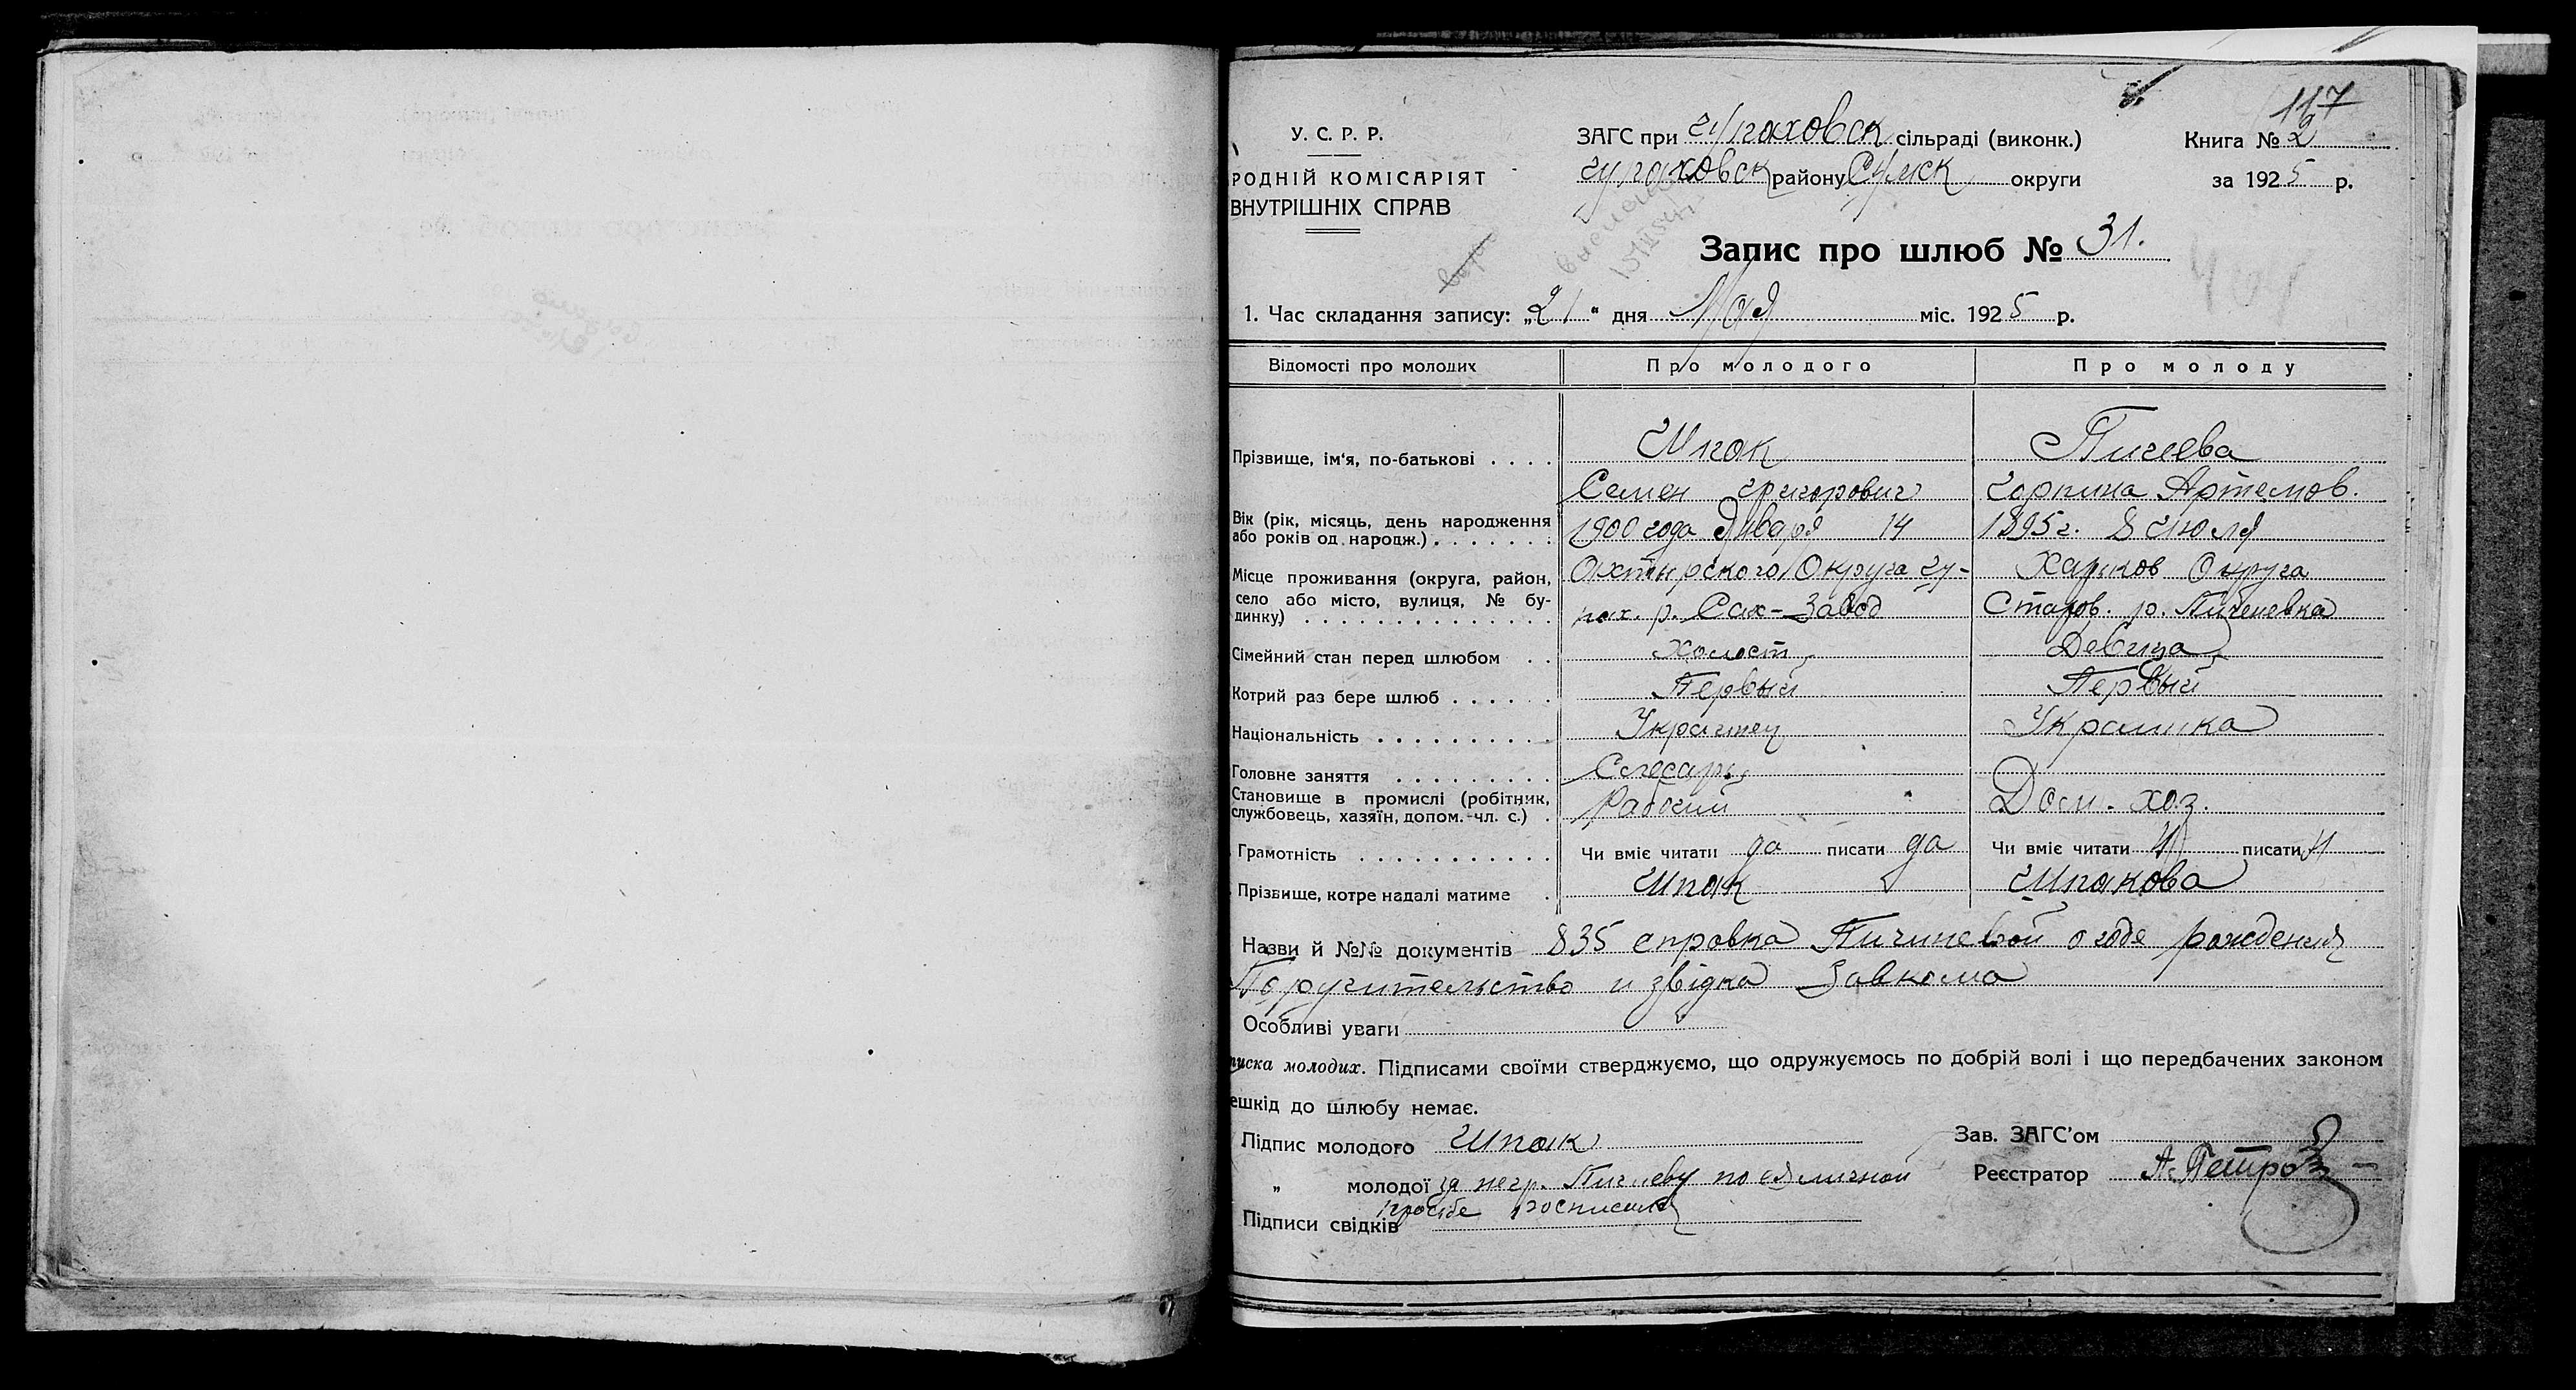 117
У. С. Р. Р.
РОДНІЙ КОМІСАРІЯТ
ВНУТРІШНІХ СПРАВ
ЗАГС при Гутаховск сільраді (виконк.)
Гупаховск району Сумск округи
Книга № 2
за 1925 р.
Запис про шлюб № 31.
1. Час складання запису: „21“ дня Мая міс. 1925 р.
Відомості про молодих Про молодого Про молоду
Прізвище, ім‘я, по-батькові . . . . Шпак Пичеева
Семен Григорович Горпина Артемов.
Вік (рік, місяць, день народження або років од народж.) . . . . . . . 1900 года Января 14 1895 г. 8 Июля
Місце проживання (округа, район, Охтырского Округа Гу- Харьков Округа
село або місто, вулиця, № бу-динку) . . . . . . . . . . . . . . пах. р. Сах-Завод Старов. р.
Сімейний стан перед шлюбом . . Холост Девица
Котрий раз бере шлюб . . . . . . Первый Первый
Національність . . . . . . . . . . Украинец Украинка
Головне заняття . . . . . . . . . Слесарь
Становище в промислі (робітник, службовець, хазяїн, допом.-чл. с.) . Рабочий Дом. хоз.
Грамотність . . . . . . . . . . . Чи вміє читати да писати да Чи вміє читати писати
Прізвище, котре надалі матиме . Шпак Шпакова
Назви й №№ документів 835 справка о годе рождения
Поручительство и звідка Завкома
Особливі уваги
писка молодих. Підписами своїми стверджуємо, що одружуємось по добрій волі і що передбачених законом
ешкід до шлюбу немає.
Підпис молодого Шпак Зав. ЗАГС’ом
„ молодої за негр. Пичееву по ея личной Реєстратор А. Петро
просьбе росписался
Підписи свідків